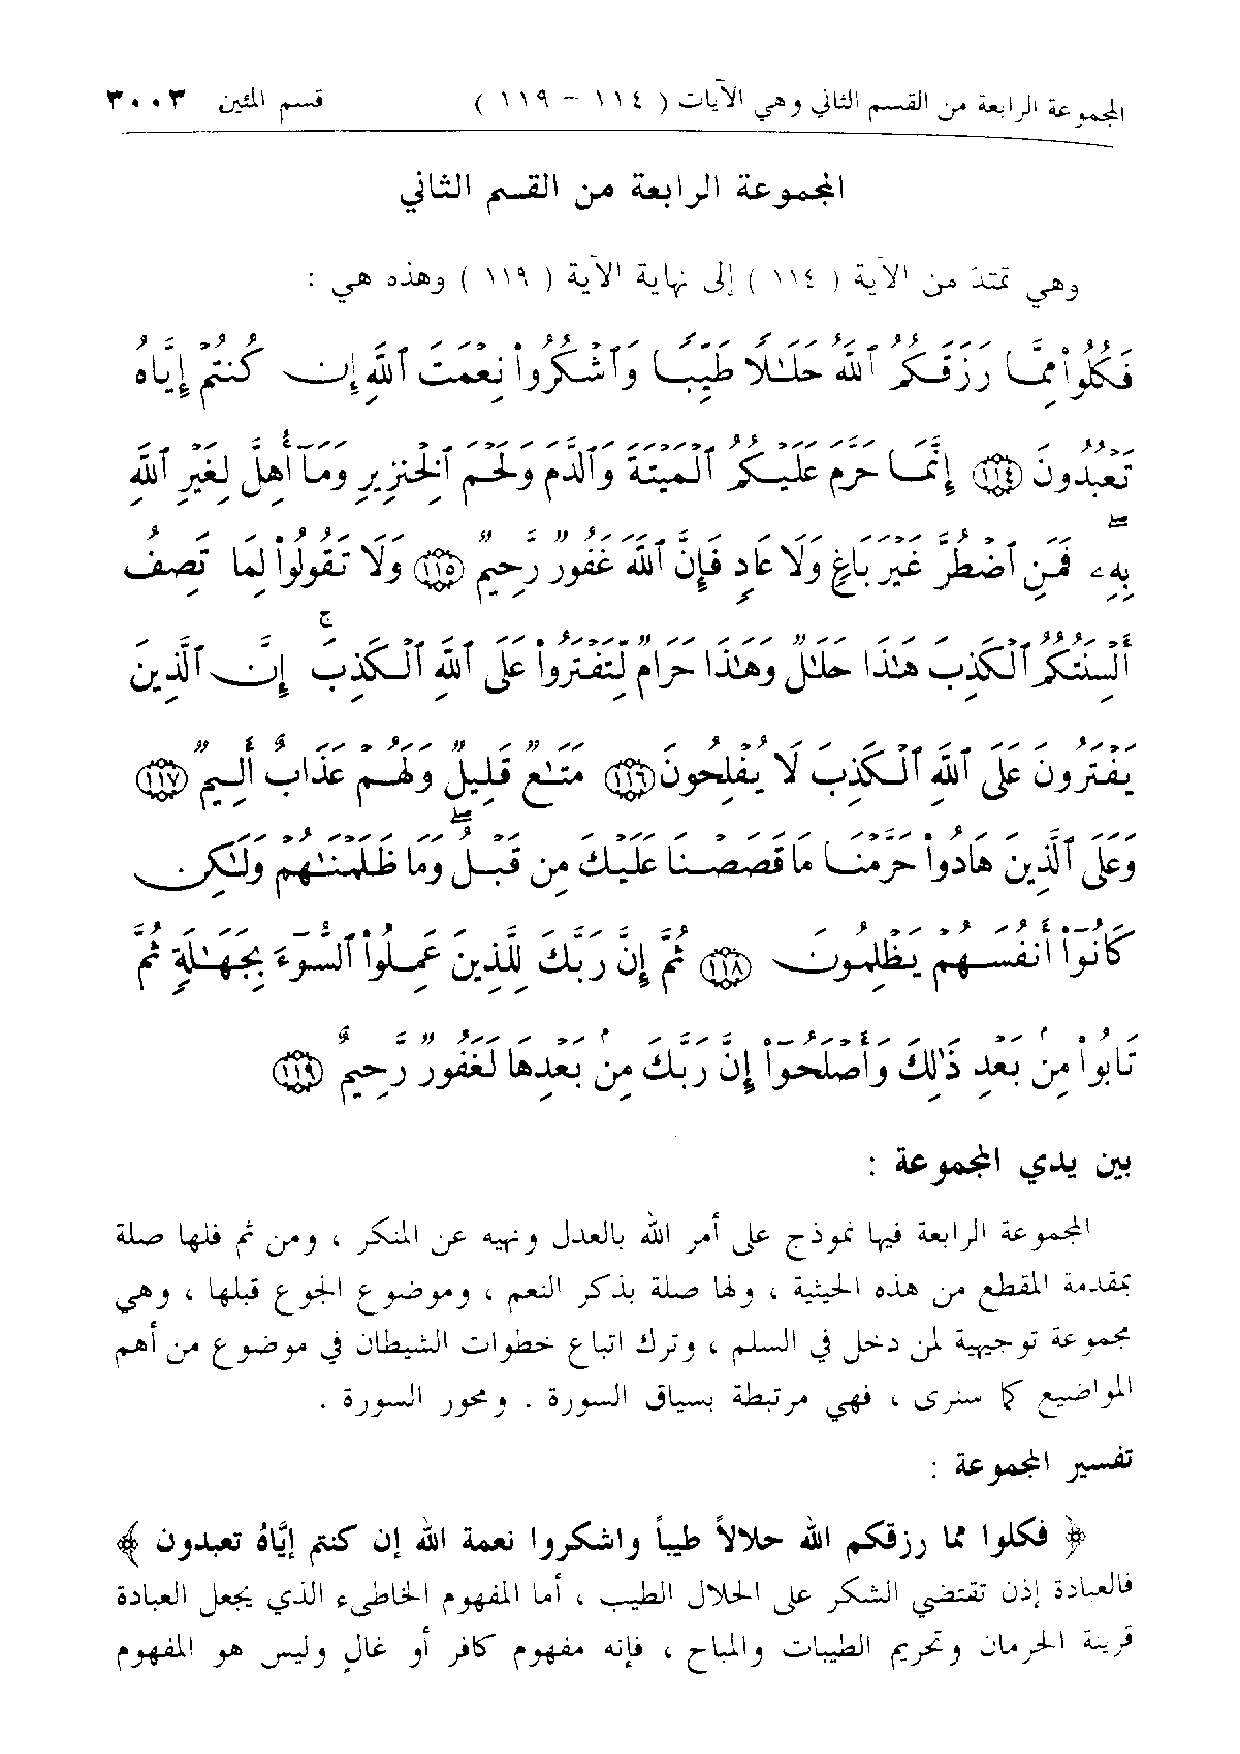 المجموعة الرابعة من القسم الثاني وهي الآيات ( ١١٤ - ١١٩ ) قسم المئين ٣٠٠٣
المجموعة الرابعة من القسم الثاني
وهي تمتدّ من الآية ( ١١٤ ) إلى نهاية الآية ( ١١٩ ) وهذه هي :
فَكُلُوا۟ مِمَّا رَزَقَكُمُ ٱللَّهُ حَلَٰلًا طَيِّبًا وَٱشْكُرُوا۟ نِعْمَتَ ٱللَّهِ إِن كُنتُمْ إِيَّاهُ
تَعْبُدُونَ ﴿١١٤﴾ إِنَّمَا حَرَّمَ عَلَيْكُمُ ٱلْمَيْتَةَ وَٱلدَّمَ وَلَحْمَ ٱلْخِنزِيرِ وَمَآ أُهِلَّ لِغَيْرِ ٱللَّهِ
بِهِۦۖ فَمَنِ ٱضْطُرَّ غَيْرَ بَاغٍ وَلَا عَادٍ فَإِنَّ ٱللَّهَ غَفُورٌ رَّحِيمٌ ﴿١١٥﴾ وَلَا تَقُولُوا۟ لِمَا تَصِفُ
أَلْسِنَتُكُمُ ٱلْكَذِبَ هَٰذَا حَلَٰلٌ وَهَٰذَا حَرَامٌ لِّتَفْتَرُوا۟ عَلَى ٱللَّهِ ٱلْكَذِبَۚ إِنَّ ٱلَّذِينَ
يَفْتَرُونَ عَلَى ٱللَّهِ ٱلْكَذِبَ لَا يُفْلِحُونَ ﴿١١٦﴾ مَتَٰعٌ قَلِيلٌ وَلَهُمْ عَذَابٌ أَلِيمٌ ﴿١١٧﴾
وَعَلَى ٱلَّذِينَ هَادُوا۟ حَرَّمْنَا مَا قَصَصْنَا عَلَيْكَ مِن قَبْلُۖ وَمَا ظَلَمْنَٰهُمْ وَلَٰكِن
كَانُوٓا۟ أَنفُسَهُمْ يَظْلِمُونَ ﴿١١٨﴾ ثُمَّ إِنَّ رَبَّكَ لِلَّذِينَ عَمِلُوا۟ ٱلسُّوٓءَ بِجَهَٰلَةٍ ثُمَّ
تَابُوا۟ مِنۢ بَعْدِ ذَٰلِكَ وَأَصْلَحُوٓا۟ إِنَّ رَبَّكَ مِنۢ بَعْدِهَا لَغَفُورٌ رَّحِيمٌ ﴿١١٩﴾
بين يدي المجموعة :
المجموعة الرابعة فيها نموذج على أمر الله بالعدل ونهيه عن المنكر ، ومن ثم فلها صلة
بمقدمة المقطع من هذه الحيثية ، ولها صلة بذكر النعم ، وموضوع الجوع قبلها ، وهي
مجموعة توجيهية لمن دخل في السلم ، وترك اتباع خطوات الشيطان في موضوع من أهم
المواضيع كما سنرى ، فهي مرتبطة بسياق السورة . ومحور السورة .
تفسير المجموعة :
﴿ فكلوا مما رزقكم الله حلالاً طيباً واشكروا نعمة الله إن كنتم إيَّاهُ تعبدون ﴾
فالعبادة إذن تقتضي الشكر على الحلال الطيب ، أما المفهوم الخاطىء الذي يجعل العبادة
قرينة الحرمان وتحريم الطيبات والمباح ، فإنه مفهوم كافر أو غالٍ وليس هو المفهوم